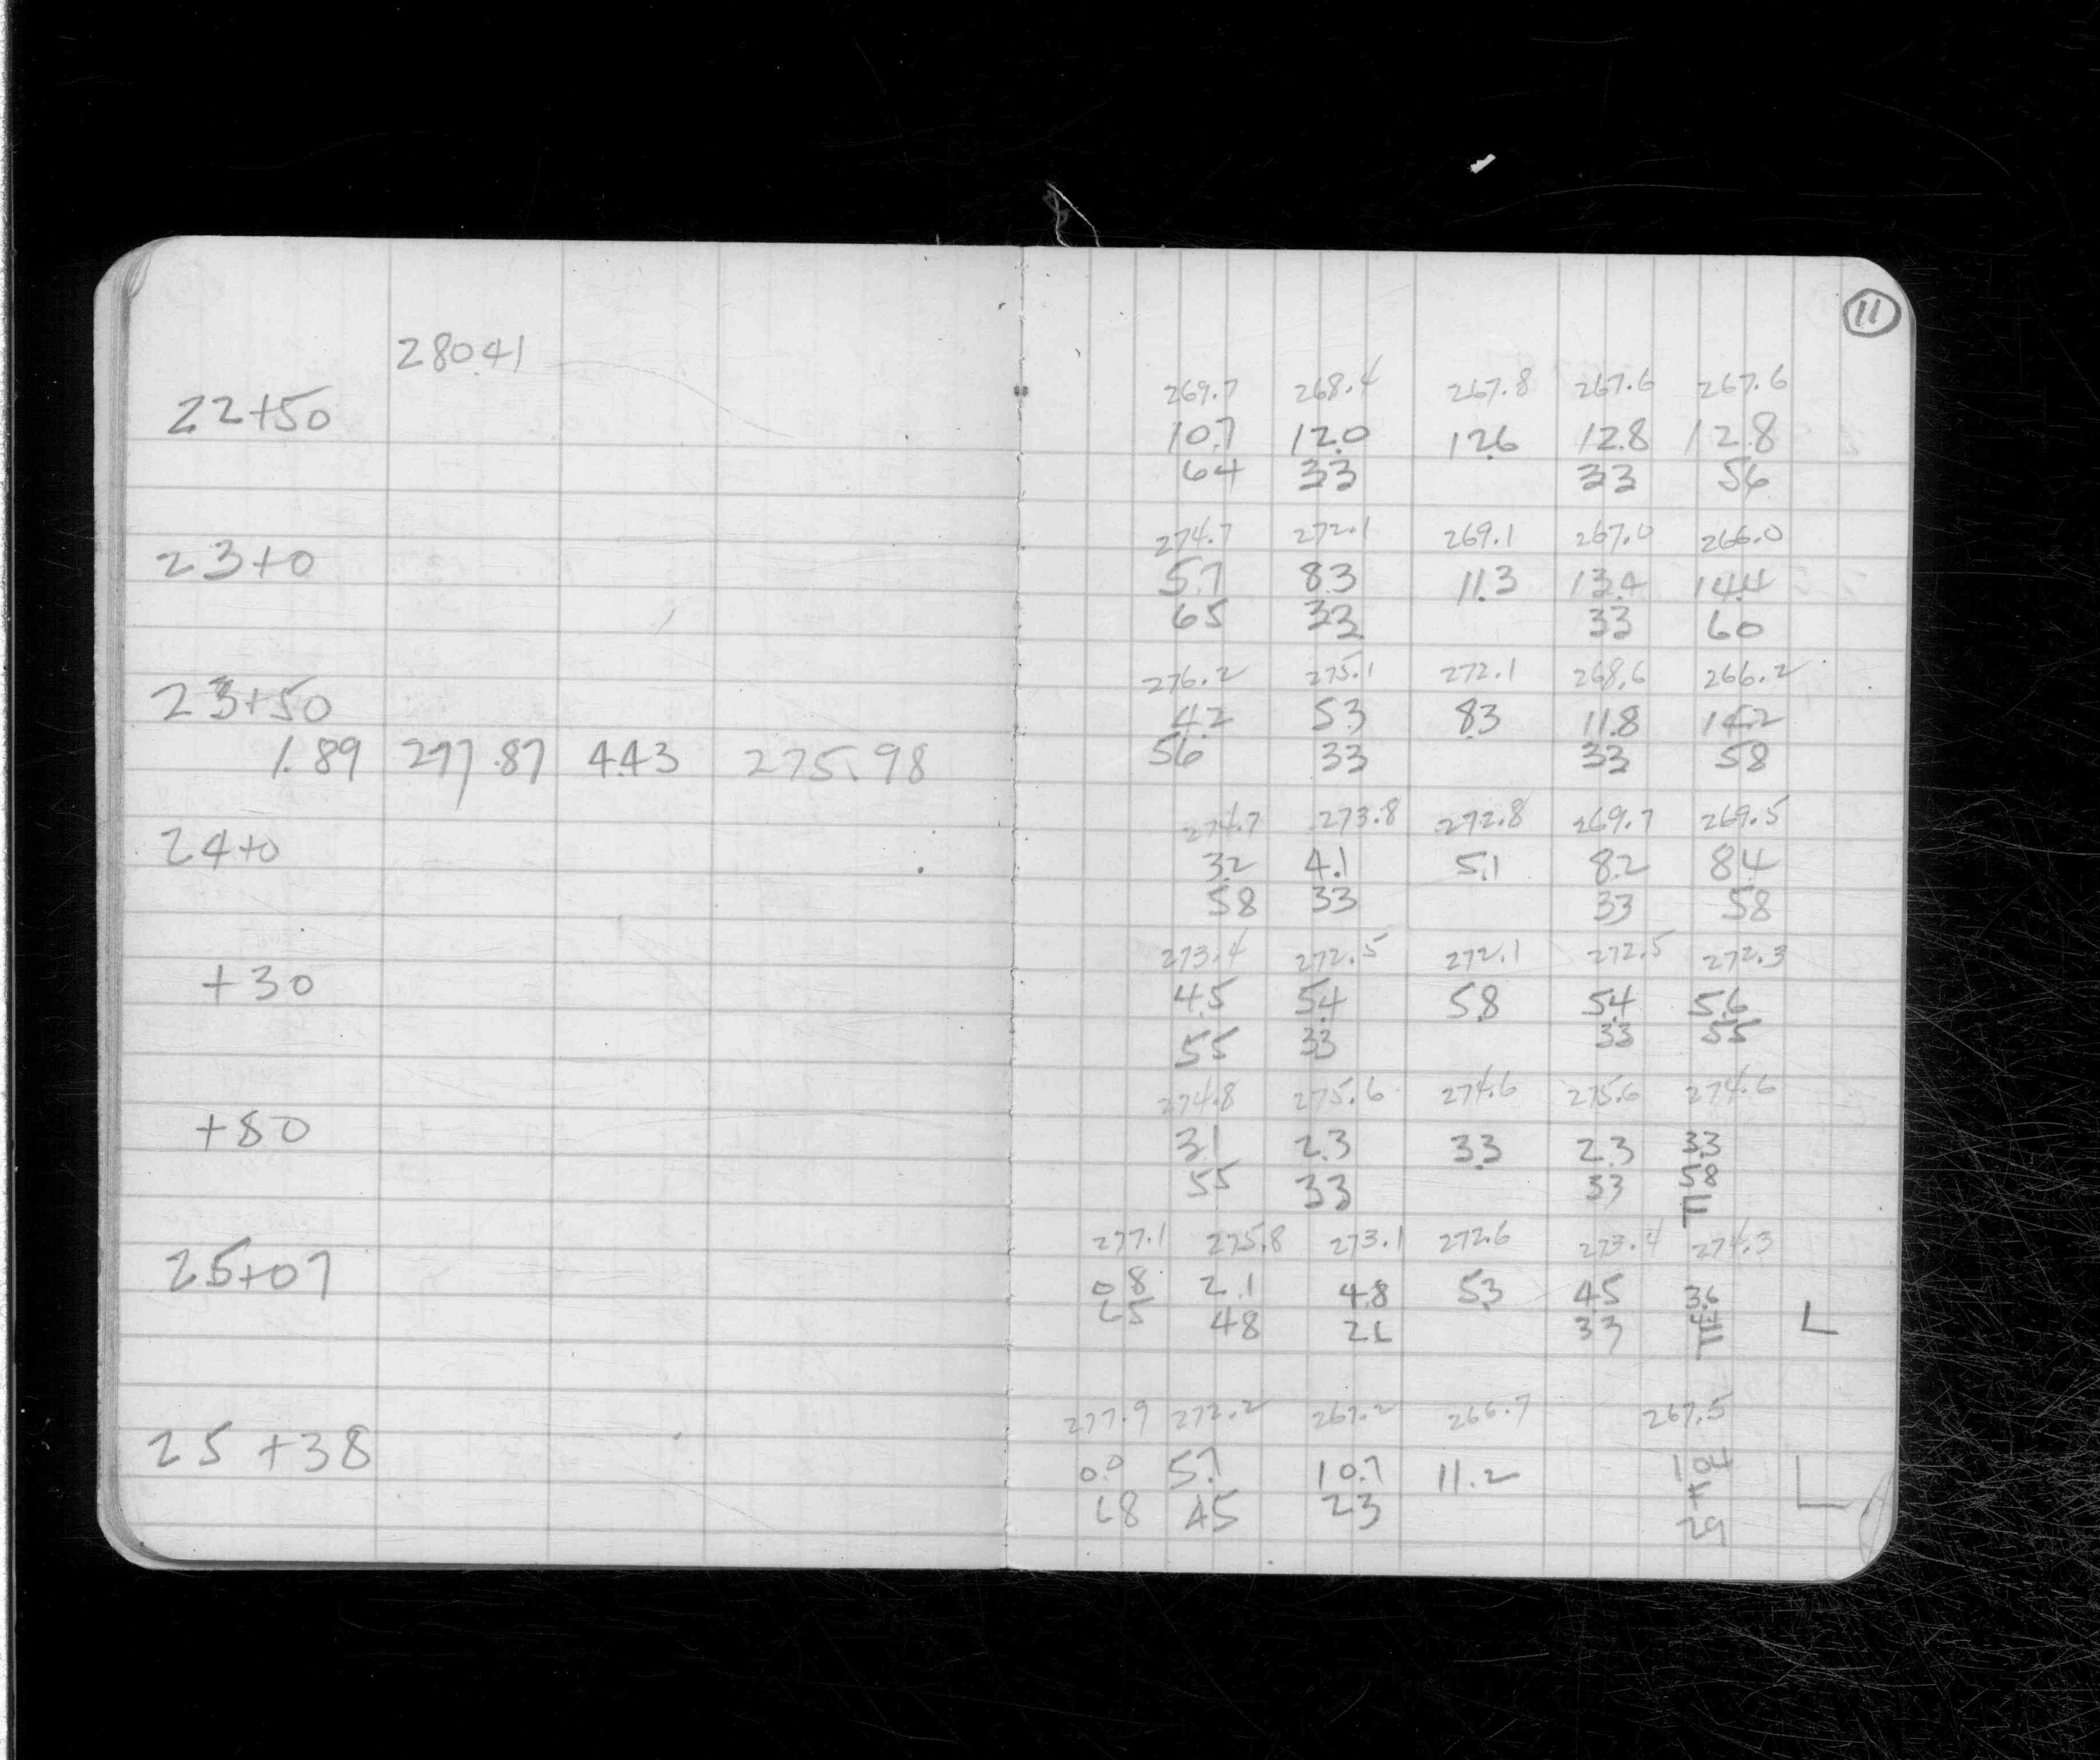 11
280.41
269.7 268.4 267.8 267.6 267.6
22+50 10.7 12.0 12.6 12.8 12.8
64 33 33 56
274.7 272.1 269.1 267.0 266.0
23+0 5.7 8.3 11.3 13.4 14.4
65 33 33 60
276.2 275.1 272.1 268.6 266.2
23+50 4.2 5.3 8.3 11.8 14.2
1.89 277.87 4.43 275.98 56 33 33 58
274.7 273.8 272.8 269.7 269.5
24+0 3.2 4.1 5.1 8.2 8.4
58 33 33 58
273.4 272.5 272.1 272.5 272.3
+30 4.5 5.4 5.8 5.4 5.6
55 33 33 55
274.8 275.6 274.6 275.6 274.6
+80 3.1 2.3 3.3 2.3 3.3
55 33 33 58
277.1 275.8 273.1 272.6 273.4 274.3
25+07 0.8 2.1 4.8 5.3 4.5 3.6
65 48 21 33 L
277.9 272.2 267.2 266.7 267.5
25+38 0.0 5.7 10.7 11.2 10.4 L
68 45 23 29